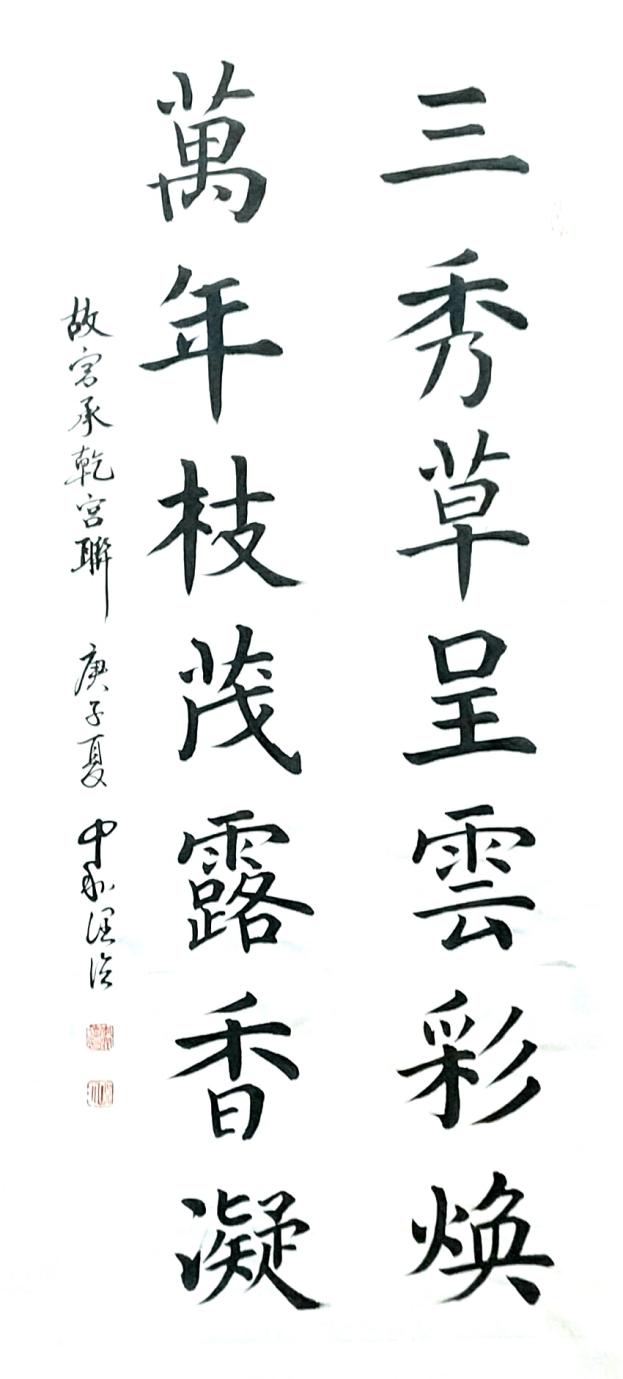 三秀草呈雲彩煥
萬年枝茂露香凝
故宮承乾宮聯 庚子夏 中和